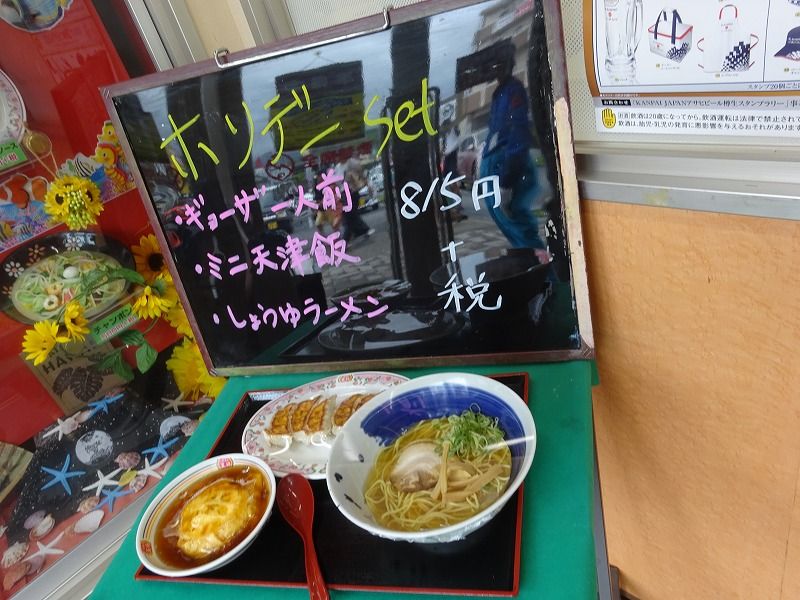 ホリデーSet
・ギョーザ一人前
・ミニ天津飯
・しょうゆラーメン
815円
+
税
チャンポン
スタンプ20個ごと
お問合わせ
「KANPAI JAPANアサヒビール樽生スタンプラリー」事
飲酒は20歳になってから。飲酒運転は法律で禁止され
飲酒は、胎児・乳児の発育に悪影響を与えるおそれがあります。